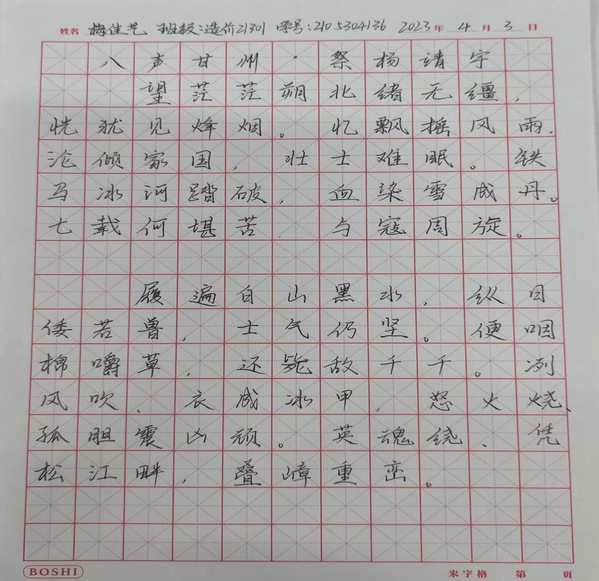 姓名 梅佳艺 班级:造价21301 学号:2105304136 2023年 4月 3日
八声甘州·祭杨靖宇
望茫茫朔北绪无缰,
恍犹见烽烟。忆飘摇风雨,
沦倾家国,壮士难眠。铁
马冰河踏破,血染雪成丹。
七载何堪苦,与寇周旋。
履遍白山黑水,纵日
倭若鲁,士气仍坚。便咽
棉嚼草,还毙敌千千。冽
风吹、衣成冰甲,怒火烧、
孤胆震凶顽。英魂绕、凭
松江畔,叠嶂重峦。
BOSHI 米字格 第 页